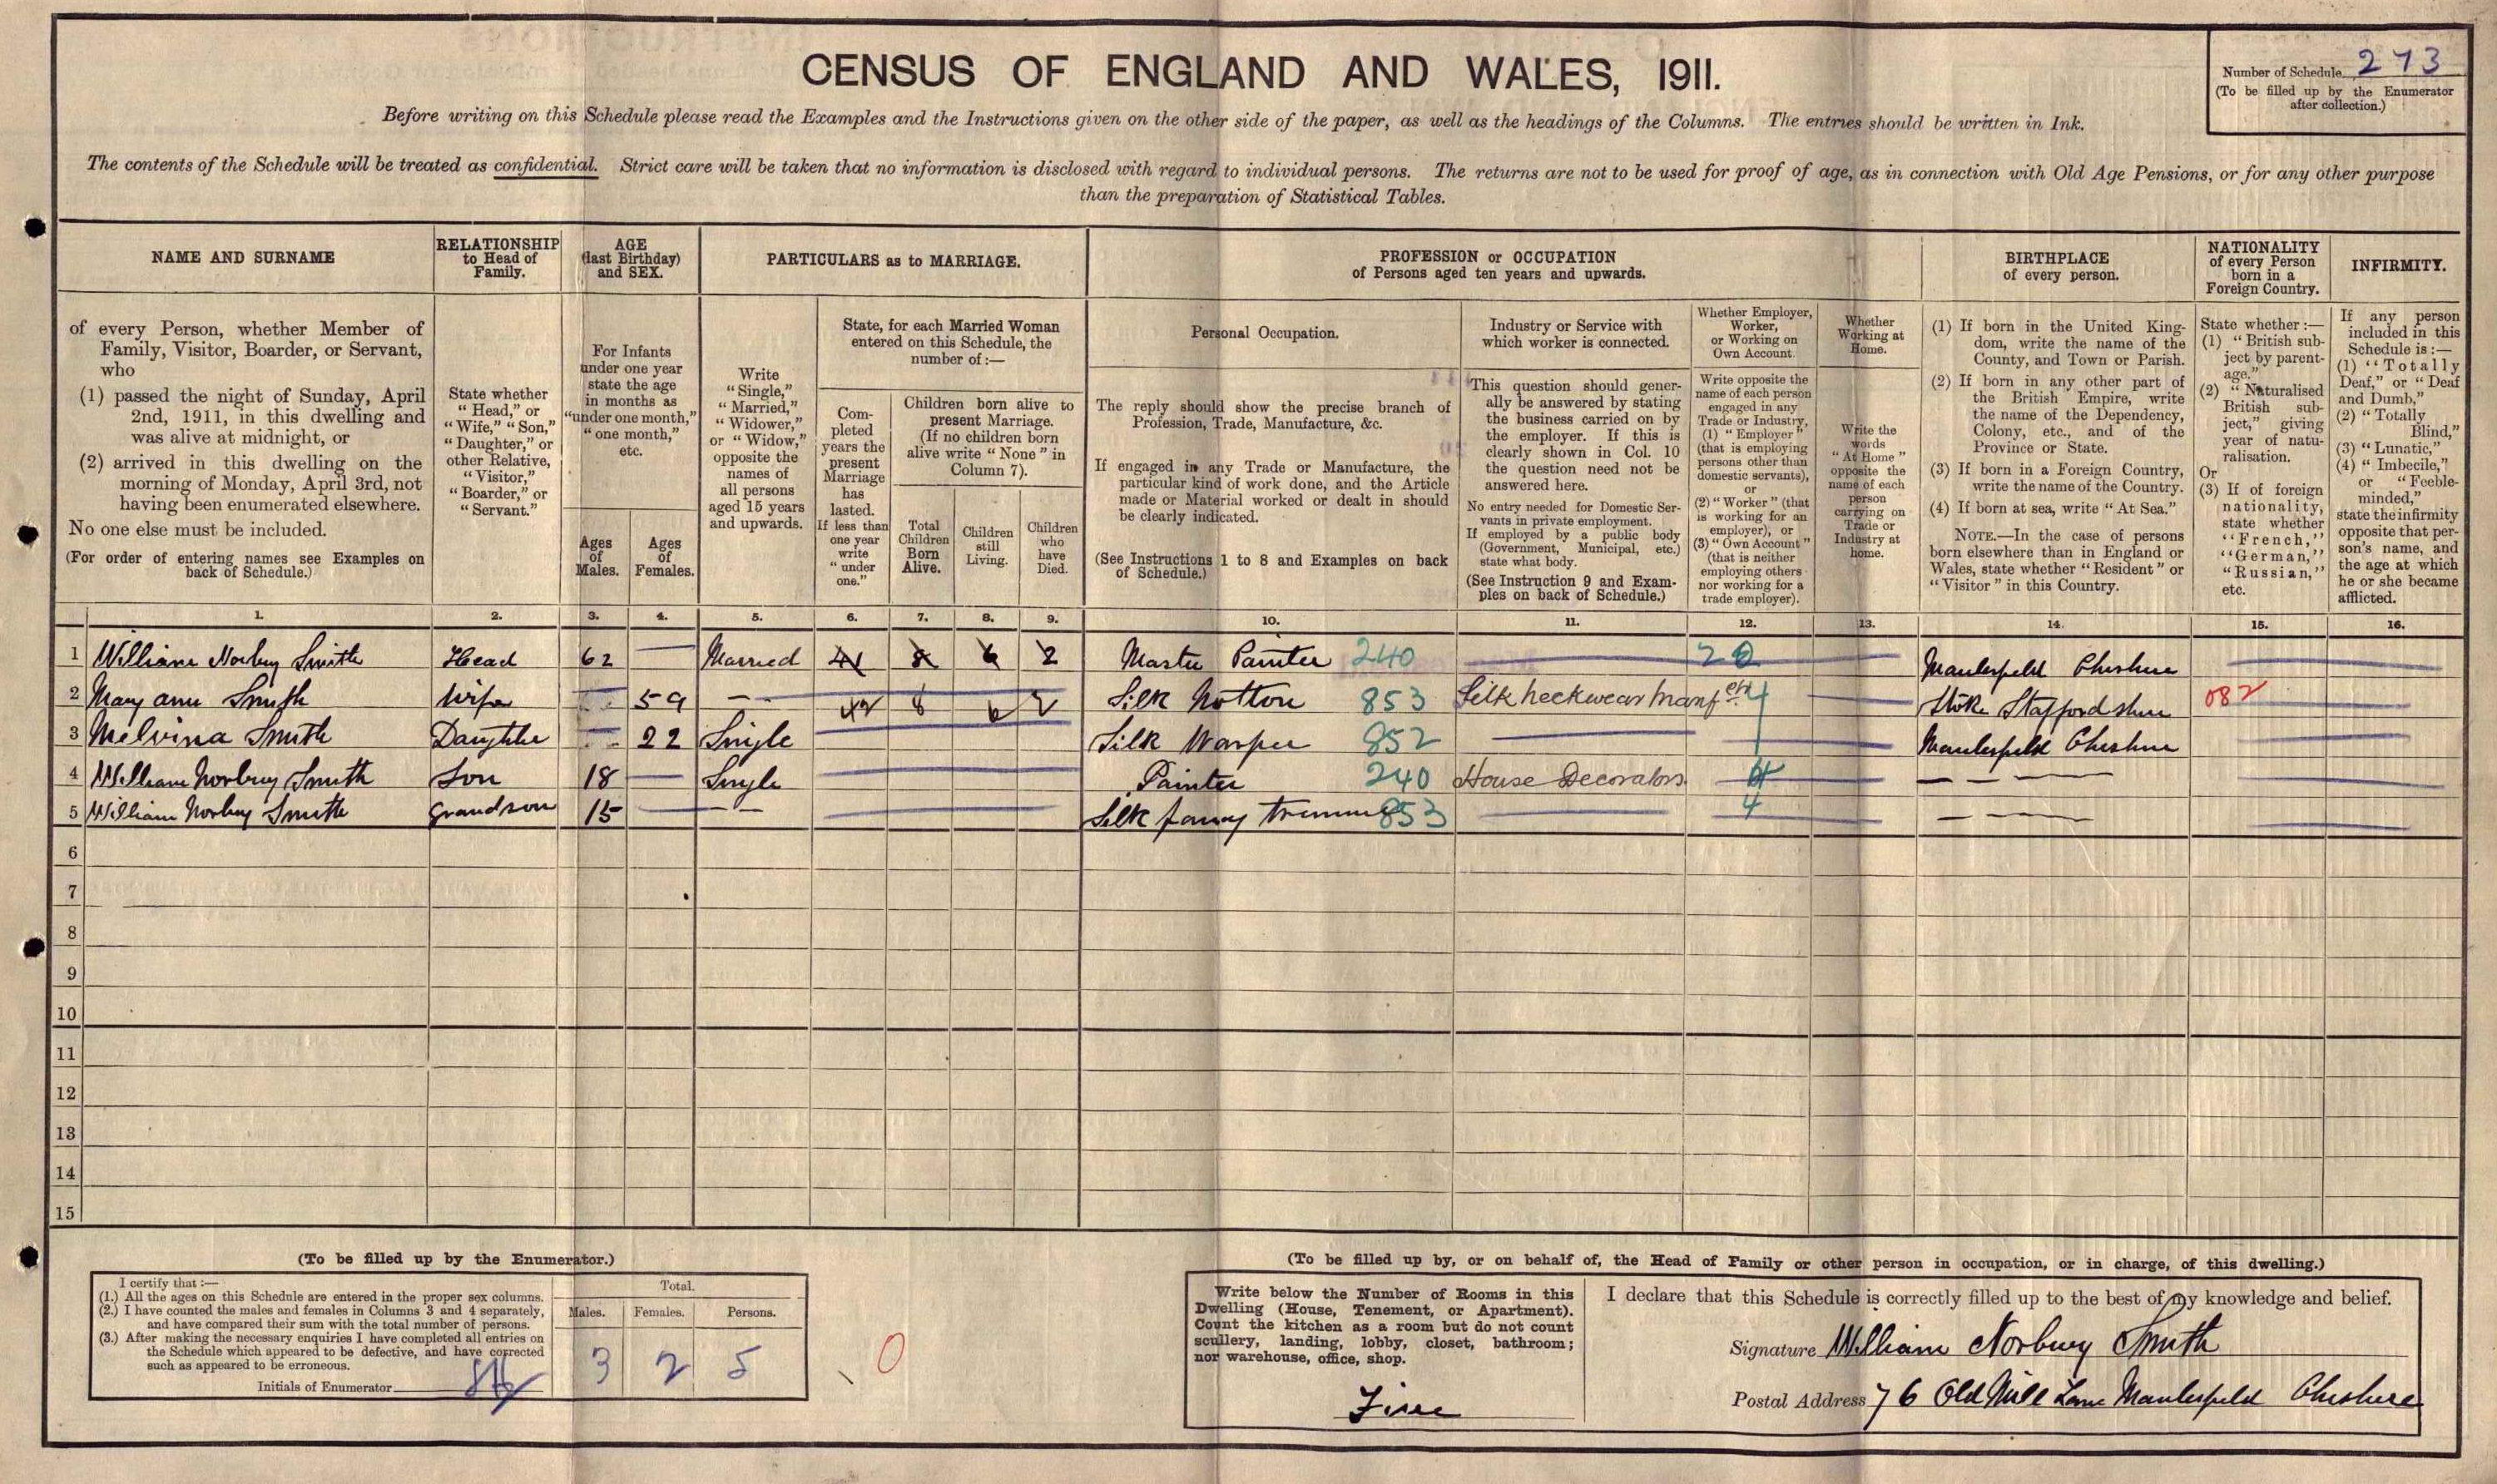 CENSUS OF ENGLAND AND WALES, 1911.
Number of Schedule 273
(To be filled up by the Enumerator
after collection.)
Before writing on this Schedule please read the Examples and the Instructions given on the other side of the paper, as well as the headings of the Columns. The entries should be written in Ink.
The contents of the Schedule will be treated as confidential. Strict care will be taken that no information is disclosed with regard to individual persons. The returns are not to be used for proof of age, as in connection with Old Age Pensions, or for any other purpose
than the preparation of Statistical Tables.
NAME AND SURNAME
of every Person, whether Member of
Family, Visitor, Boarder, or Servant,
who
(1) passed the night of Sunday, April
2nd, 1911, in this dwelling and
was alive at midnight, or
(2) arrived in this dwelling on the
morning of Monday, April 3rd, not
having been enumerated elsewhere.
No one else must be included.
(For order of entering names see Examples on
back of Schedule.)
RELATIONSHIP
to Head of
Family.
State whether
"Head," or
"Wife," "Son,"
"Daughter," or
other Relative,
"Visitor,"
"Boarder," or
"Servant."
AGE
(last Birthday)
and SEX.
For Infants
under one year
state the age
in months as
"under one month,"
"one month,"
etc.
Ages
of
Males.
Ages
of
Females.
PARTICULARS as to MARRIAGE.
Write
"Single,"
"Married,"
"Widower,"
or "Widow,"
opposite the
names of
all persons
aged 15 years
and upwards.
State, for each Married Woman
entered on this Schedule, the
number of:—
Com-
pleted
years the
present
Marriage
has
lasted.
If less than
one year
write
"under
one."
Children born alive to
present Marriage.
(If no children born
alive write "None" in
Column 7).
Total
Children
Born
Alive.
Children
still
Living.
Children
who
have
Died.
PROFESSION or OCCUPATION
of Persons aged ten years and upwards.
Personal Occupation.
The reply should show the precise branch of
Profession, Trade, Manufacture, &c.
If engaged in any Trade or Manufacture, the
particular kind of work done, and the Article
made or Material worked or dealt in should
be clearly indicated.
(See Instructions 1 to 8 and Examples on back
of Schedule.)
Industry or Service with
which worker is connected.
This question should gener-
ally be answered by stating
the business carried on by
the employer. If this is
clearly shown in Col. 10
the question need not be
answered here.
No entry needed for Domestic Ser-
vants in private employment.
If employed by a public body
(Government, Municipal, etc.)
state what body.
(See Instruction 9 and Exam-
ples on back of Schedule.)
Whether Employer,
Worker,
or Working on
Own Account.
Write opposite the
name of each person
engaged in any
Trade or Industry,
(1) "Employer"
(that is employing
persons other than
domestic servants),
or
(2) "Worker" (that
is working for an
employer), or
(3) "Own Account"
(that is neither
employing others
nor working for a
trade employer).
Whether
Working at
Home.
Write the
words
"At Home"
opposite the
name of each
person
carrying on
Trade or
Industry at
home.
BIRTHPLACE
of every person.
(1) If born in the United King-
dom, write the name of the
County, and Town or Parish.
(2) If born in any other part of
the British Empire, write
the name of the Dependency,
Colony, etc., and of the
Province or State.
(3) If born in a Foreign Country,
write the name of the Country.
(4) If born at sea, write "At Sea."
NOTE.—In the case of persons
born elsewhere than in England or
Wales, state whether "Resident" or
"Visitor" in this Country.
NATIONALITY
of every Person
born in a
Foreign Country.
State whether:—
(1) "British sub-
ject by parent-
age."
(2) "Naturalised
British sub-
ject," giving
year of natu-
ralisation.
Or
(3) If of foreign
nationality,
state whether
"French,"
"German,"
"Russian,"
etc.
INFIRMITY.
If any person
included in this
Schedule is:—
(1) "Totally
Deaf," or "Deaf
and Dumb,"
(2) "Totally
Blind,"
(3) "Lunatic,"
(4) "Imbecile,"
or "Feeble-
minded,"
state the infirmity
opposite that per-
son's name, and
the age at which
he or she became
afflicted.
1. 2. 3. 4. 5. 6. 7. 8. 9. 10. 11. 12. 13. 14. 15. 16.
1 William Norbury Smith Head 62 Married 41 8 6 2 Master Painter 240 Macclesfield Cheshire
2 Mary ann Smith Wife 59 42 8 6 2 Silk Notton 853 Silk neckwear Manf 4 Stoke Staffordshire 082
3 Melvina Smith Daughter 22 Single Silk Warper 852 Macclesfield Cheshire
4 William Norbury Smith Son 18 Single Painter 240 House Decorators 4
5 William Norbury Smith Grandson 15 Silk fancy trimmer 853 4
6
7
8
9
10
11
12
13
14
15
(To be filled up by the Enumerator.)
I certify that:—
(1.) All the ages on this Schedule are entered in the proper sex columns.
(2.) I have counted the males and females in Columns 3 and 4 separately,
and have compared their sum with the total number of persons.
(3.) After making the necessary enquiries I have completed all entries on
the Schedule which appeared to be defective, and have corrected
such as appeared to be erroneous.
Initials of Enumerator
Total.
Males. Females. Persons.
3 2 5
0
(To be filled up by, or on behalf of, the Head of Family or other person in occupation, or in charge, of this dwelling.)
Write below the Number of Rooms in this
Dwelling (House, Tenement, or Apartment).
Count the kitchen as a room but do not count
scullery, landing, lobby, closet, bathroom;
nor warehouse, office, shop.
Five
I declare that this Schedule is correctly filled up to the best of my knowledge and belief.
Signature William Norbury Smith
Postal Address 76 Old Mill Lane Macclesfield Cheshire